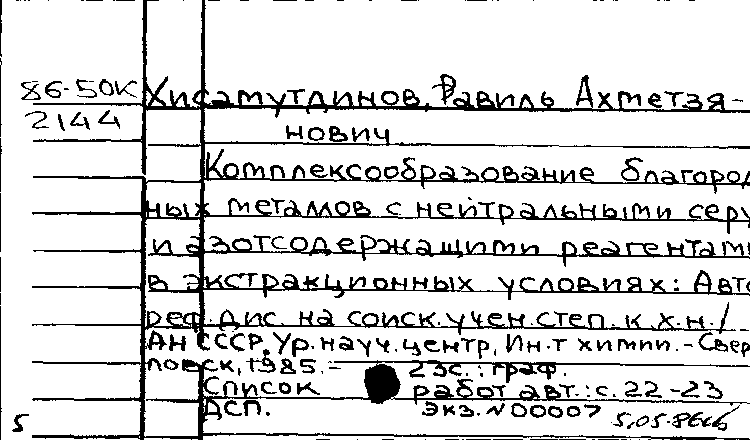 86-50К Хисамутдинов, Равиль Ахметзя-
2144 нович
Комплексообразование благород
ных металлов с нейтральными серу
и азотсодержащими реагентами
в экстракционных условиях: Авто
реф. дис. на соиск. учен. степ. к. х. н. /
АН СССР, Ур. науч. центр, Ин-т химии. - Свер
ловск, 1985. - 23с.: граф.
Список работ авт.: с. 22-23
ДСП. экз. N 00007 5.05.86
5